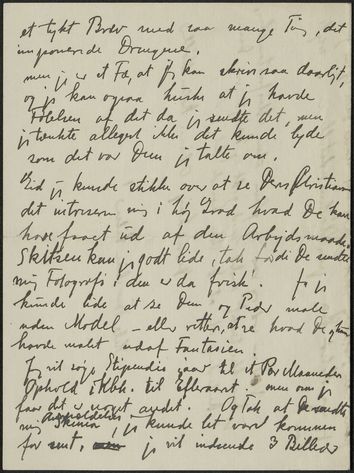 et tykt Brev med saa mange Ting, det
imponerede Drengene.
men jeg er et Fæ, at jeg kan skrive saa daarligt,
og jeg kan ogsaa huske at jeg havde
Følelsen af det da jeg sendte det, men
jeg tænkte allegevel ikke det kunde lyde
som det var Dem jeg talte om.
Gid jeg kunde stikke over at se Deres Christian
det intresserer mig i høj Grad hvad De kan
have faaet ud af den Arbejdsmaade
Skitsen kan jeg godt lide, tak fordi De sendte
mig Fotografi i den er da frisk! Ja jeg
kunde lide at se Dem og Peder male
uden Model – eller rettere, at se hvad De
havde malt udaf Fantasien
Jeg vil søge Stipendie igaar til et Par Maaneders
Ophold i Kbh. til Efteraaret. men om jeg
faar det er noget andet. Og Tak at De sendte
mig Skema, jeg kunde let være kommen
for sent. jeg vil indsende 3 Billeder